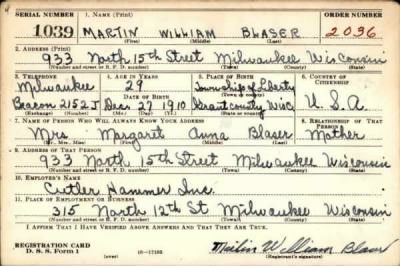 SERIAL NUMBER 1. NAME (Print) ORDER NUMBER
1039 MARTIN WILLIAM BLASER 2036
(First) (Middle) (Last)
2. ADDRESS (Print)
933 North 15th Street Milwaukee Wisconsin
(Number and street or R. F. D. number) (Town) (County) (State)
3. TELEPHONE 4. AGE IN YEARS 5. PLACE OF BIRTH 6. COUNTRY OF CITIZENSHIP
Milwaukee 29 Township of Liberty
DATE OF BIRTH
Beacon 2152 J Dec 27 1910 Grant county Wis U. S. A.
(Exchange) (Number) (Mo.) (Day) (Yr.) (State or country)
7. NAME OF PERSON WHO WILL ALWAYS KNOW YOUR ADDRESS 8. RELATIONSHIP OF THAT PERSON
Mrs Margaret Anna Blaser Mother
(Mr., Mrs., Miss) (First) (Middle) (Last)
9. ADDRESS OF THAT PERSON
933 North 15th Street Milwaukee Wisconsin
(Number and street or R. F. D. number) (Town) (County) (State)
10. EMPLOYER'S NAME
Cutler Hammer Inc.
11. PLACE OF EMPLOYMENT OR BUSINESS
315 North 12th St Milwaukee Wisconsin
(Number and street or R. F. D. number) (Town) (County) (State)
I AFFIRM THAT I HAVE VERIFIED ABOVE ANSWERS AND THAT THEY ARE TRUE.
REGISTRATION CARD
D. S. S. Form 1 (over) Martin William Blaser
(Registrant's signature)